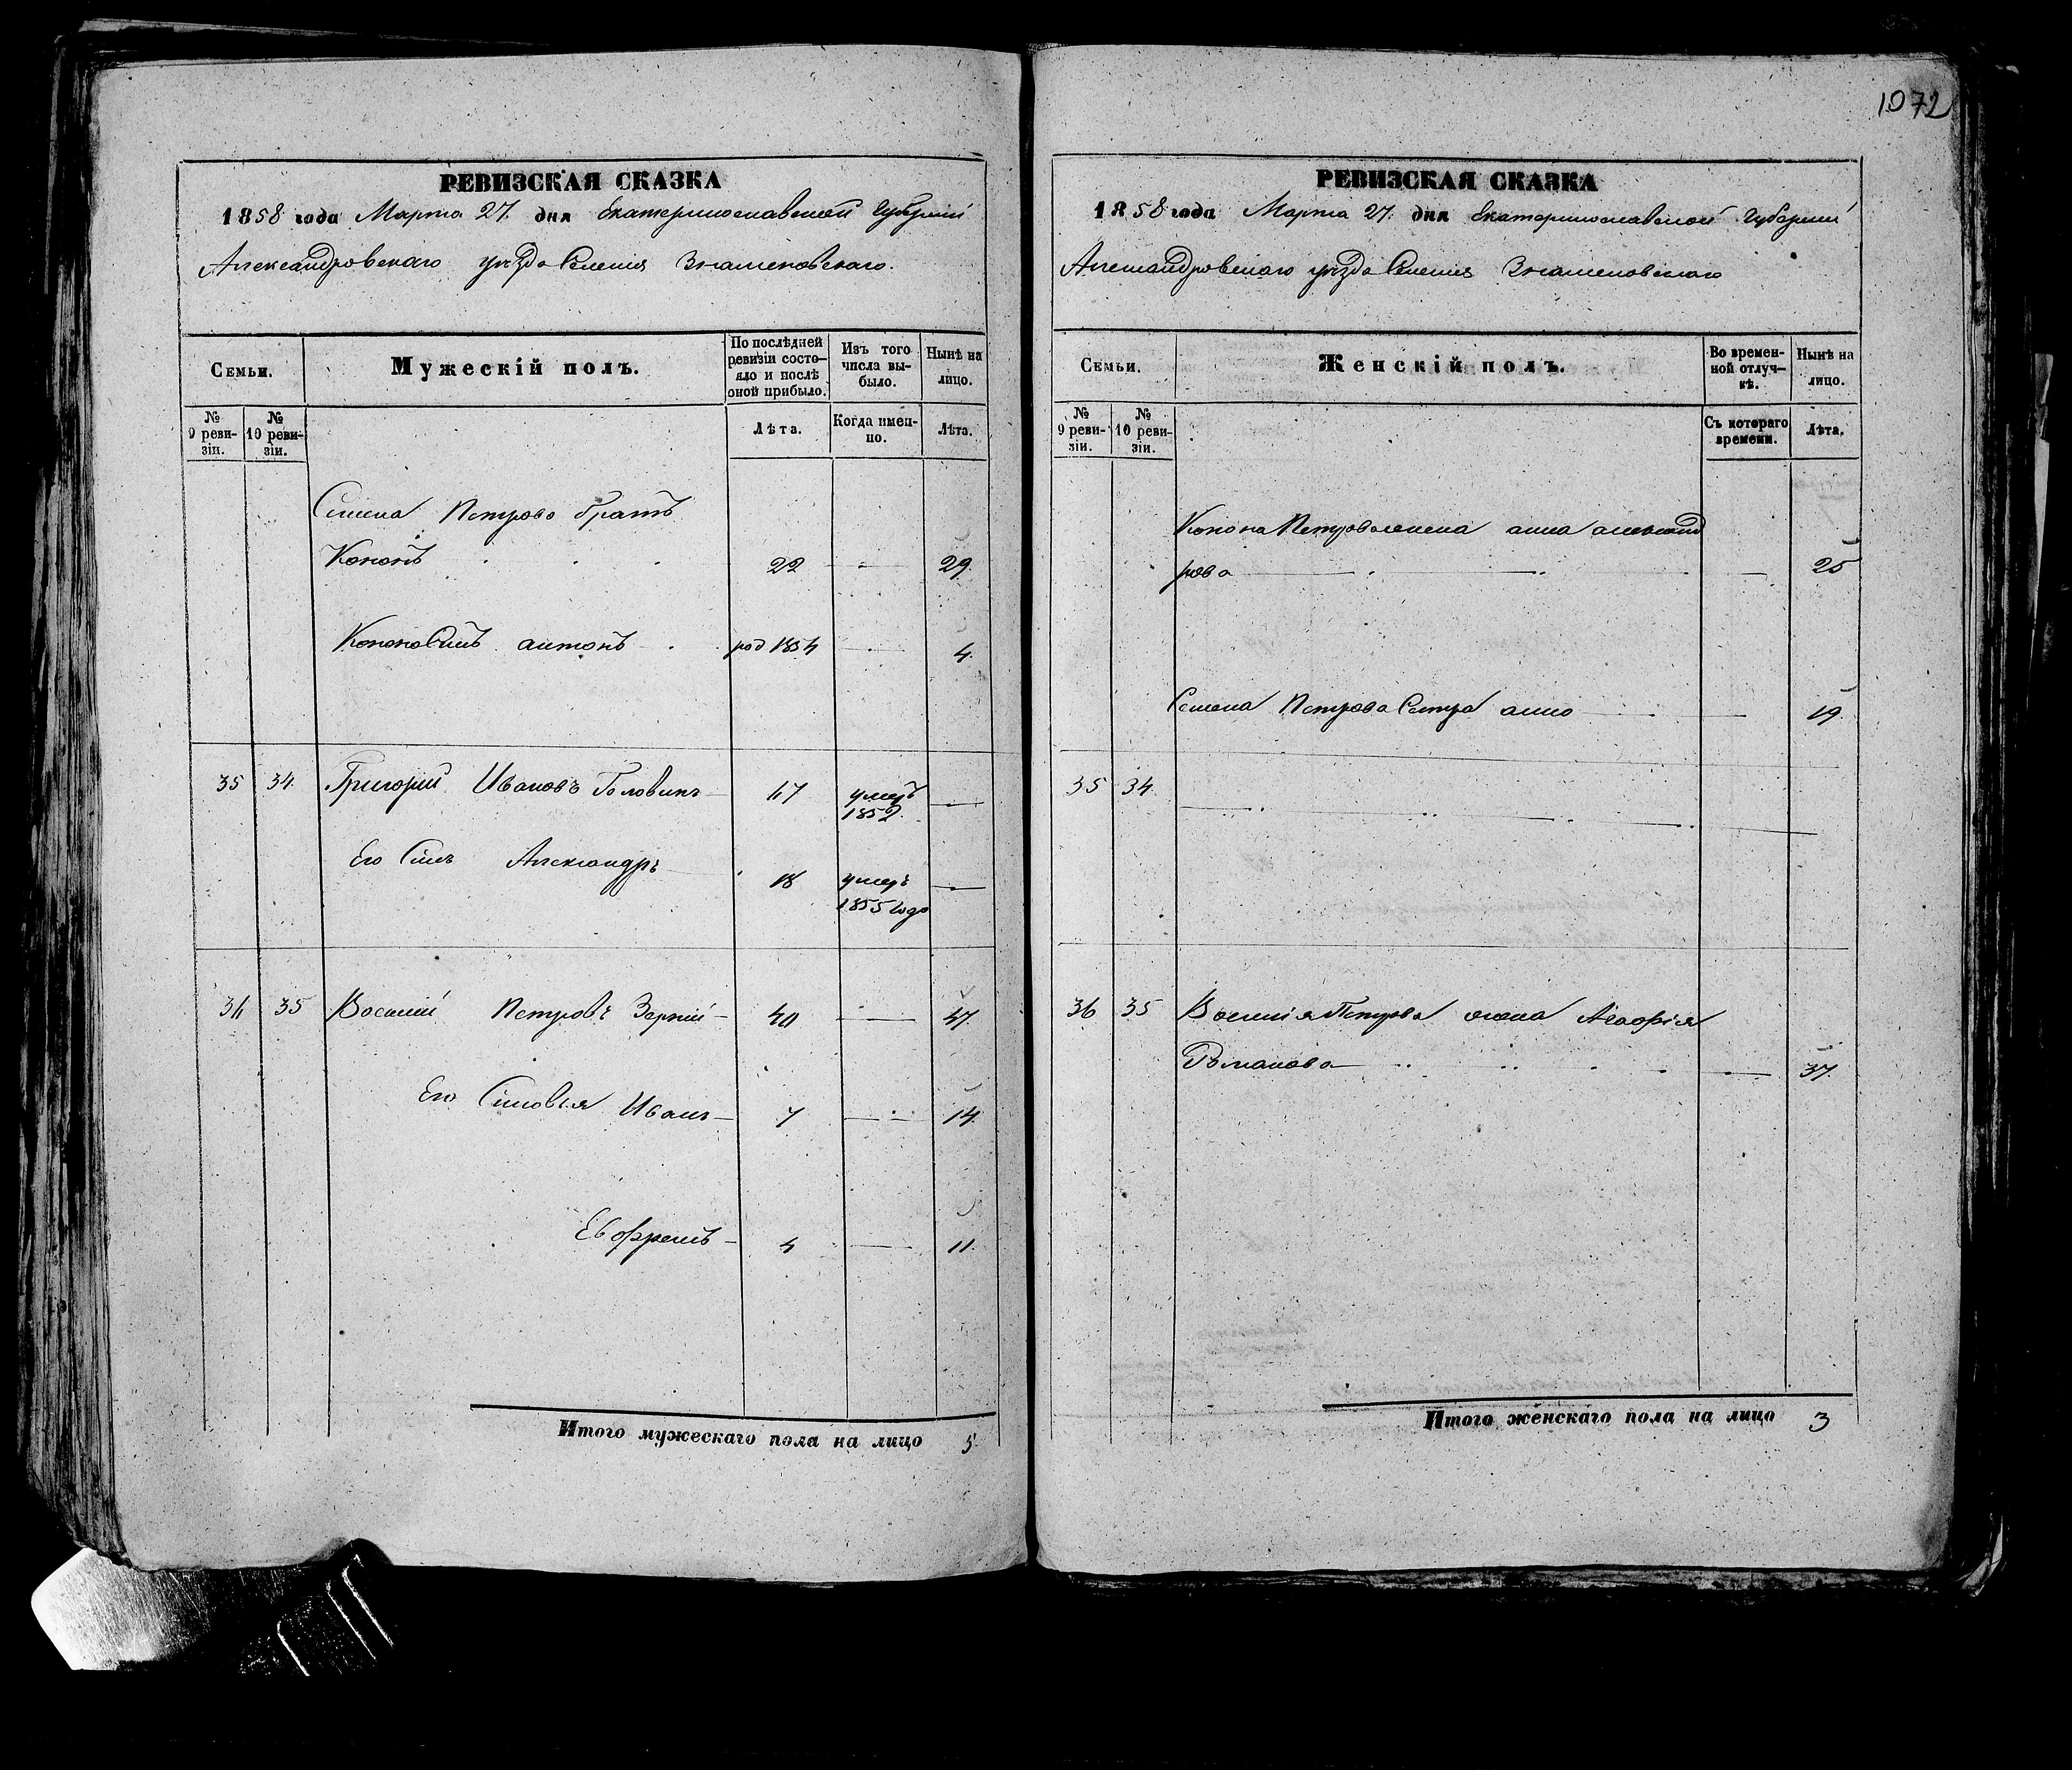 1072
РЕВИЗСКАЯ СКАЗКА
1858 года Марта 27. дня Екатеринославской Губерніи
Александровскаго уѣзда Селенія Знаменовскаго.
Семьи.
Мужескій полъ.
По послѣдней ревизіи состо-
яло и послѣ оной прибыло.
Изъ того числа вы-
было.
Нынѣ на лицо.
№ 9 реви-
зіи.
№ 10 реви-
зіи.
Лѣта.
Когда имен-
но.
Лѣта.
Семена Петрова братъ
Кононъ 22 — 29.
Конона Сынъ антонъ род 1854 — 4.
35 34. Григорий Ивановъ Головинъ 47 умеръ 1852. —
Его Сынъ Александръ 18 умеръ 1855 года —
36 35 Василий Петровъ — 40 — 47.
Его Сыновья Иванъ — 7 — 14.
Евфремъ — 4 — 11.
Итого мужескаго пола на лицо 5.
РЕВИЗСКАЯ СКАЗКА
1858 года Марта 27. дня Екатеринославской Губерніи
Александровскаго уѣзда Селенія Знаменовскаго
Семьи.
Женскій полъ.
Во времен-
ной отлуч-
кѣ.
Нынѣ на лицо.
№ 9 реви-
зіи.
№ 10 реви-
зіи.
Съ котораго времени.
Лѣта.
Конона Петрова жена анна александ
рова — — 25
Семена Петрова Сестра анна — 19.
35 34.
36 35 Василія Петрова жена Агафія
Романова — — 37.
Итого женскаго пола на лицо 3